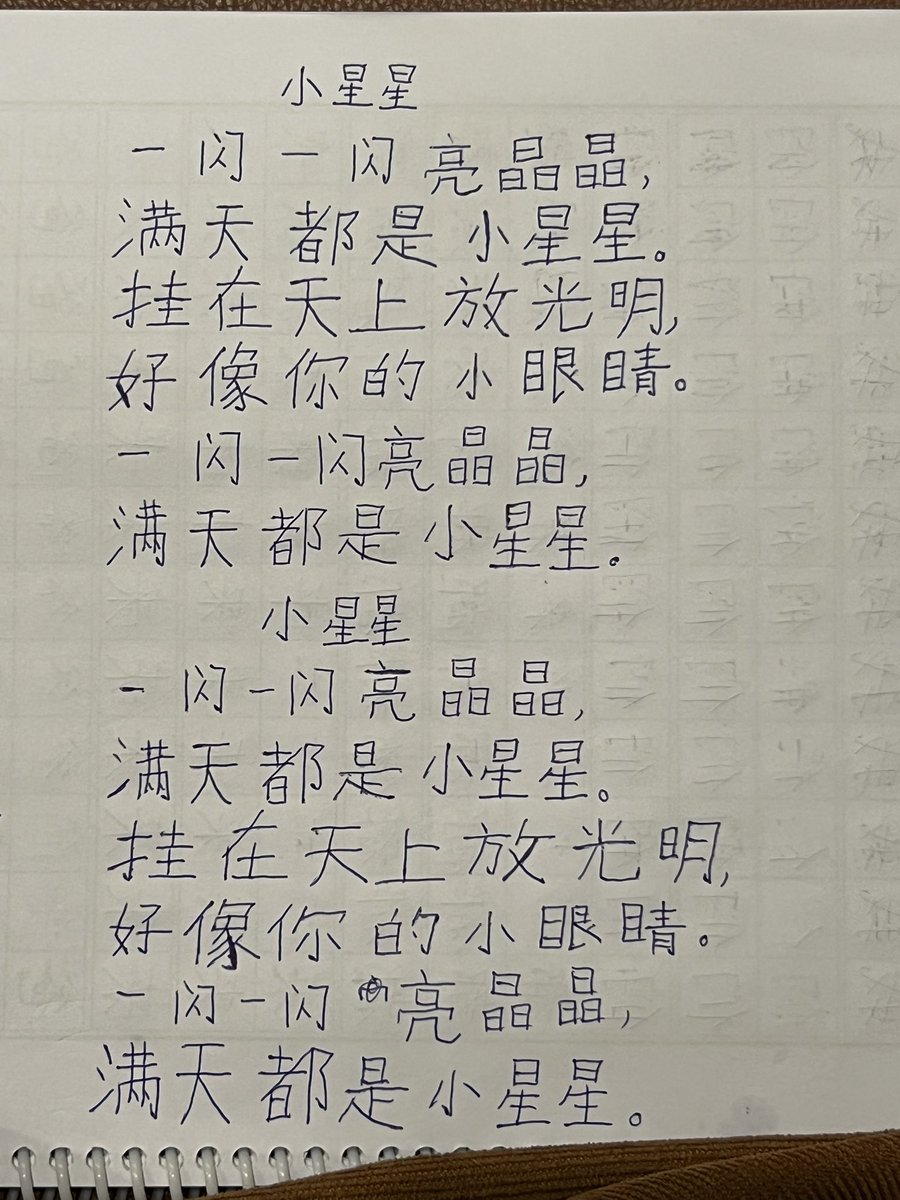 小星星
一闪一闪亮晶晶,
满天都是小星星。
挂在天上放光明,
好像你的小眼睛。
一闪一闪亮晶晶,
满天都是小星星。
小星星
一闪一闪亮晶晶,
满天都是小星星。
挂在天上放光明,
好像你的小眼睛。
一闪一闪亮晶晶,
满天都是小星星。